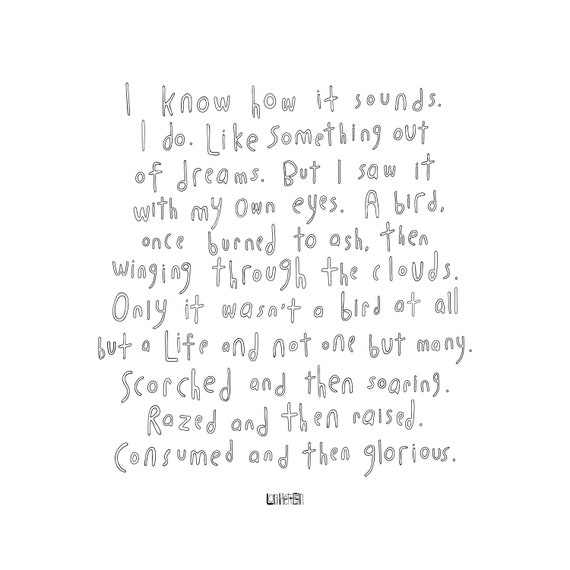 I know how it sounds.
I do. Like something out
of dreams. But I saw it
with my own eyes. A bird,
once burned to ash, then
winging through the clouds.
Only it wasn't a bird at all
but a Life and not one but many.
Scorched and then soaring.
Razed and then raised.
Consumed and then glorious.